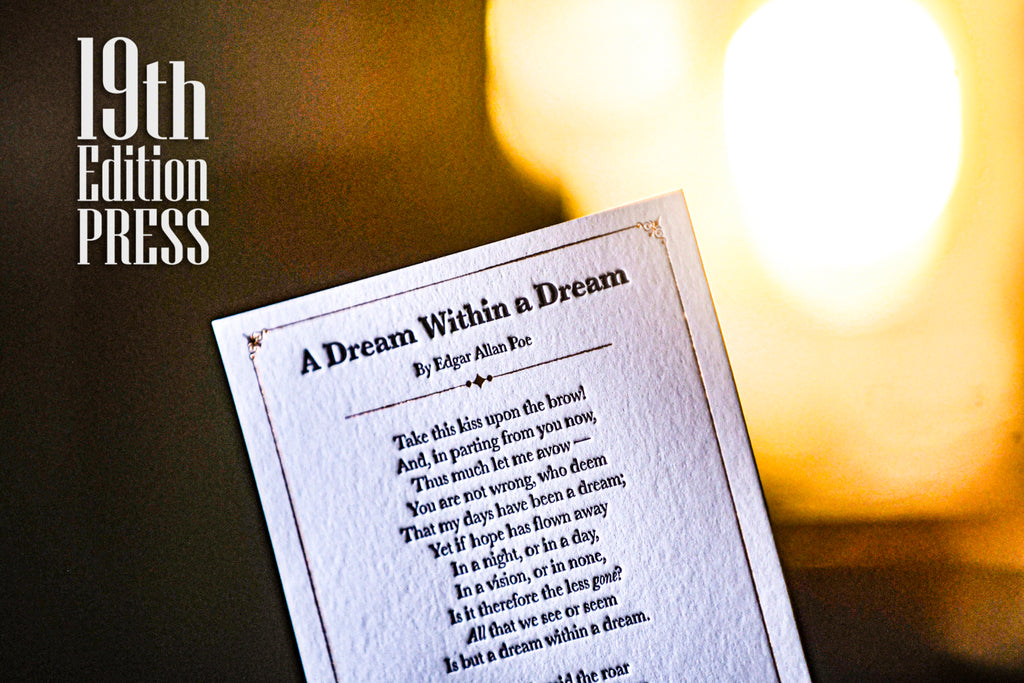 19th
Edition
PRESS
A Dream Within a Dream
By Edgar Allan Poe
Take this kiss upon the brow!
And, in parting from you now,
Thus much let me avow —
You are not wrong, who deem
That my days have been a dream;
Yet if hope has flown away
In a night, or in a day,
In a vision, or in none,
Is it therefore the less gone?
All that we see or seem
Is but a dream within a dream.
the roar